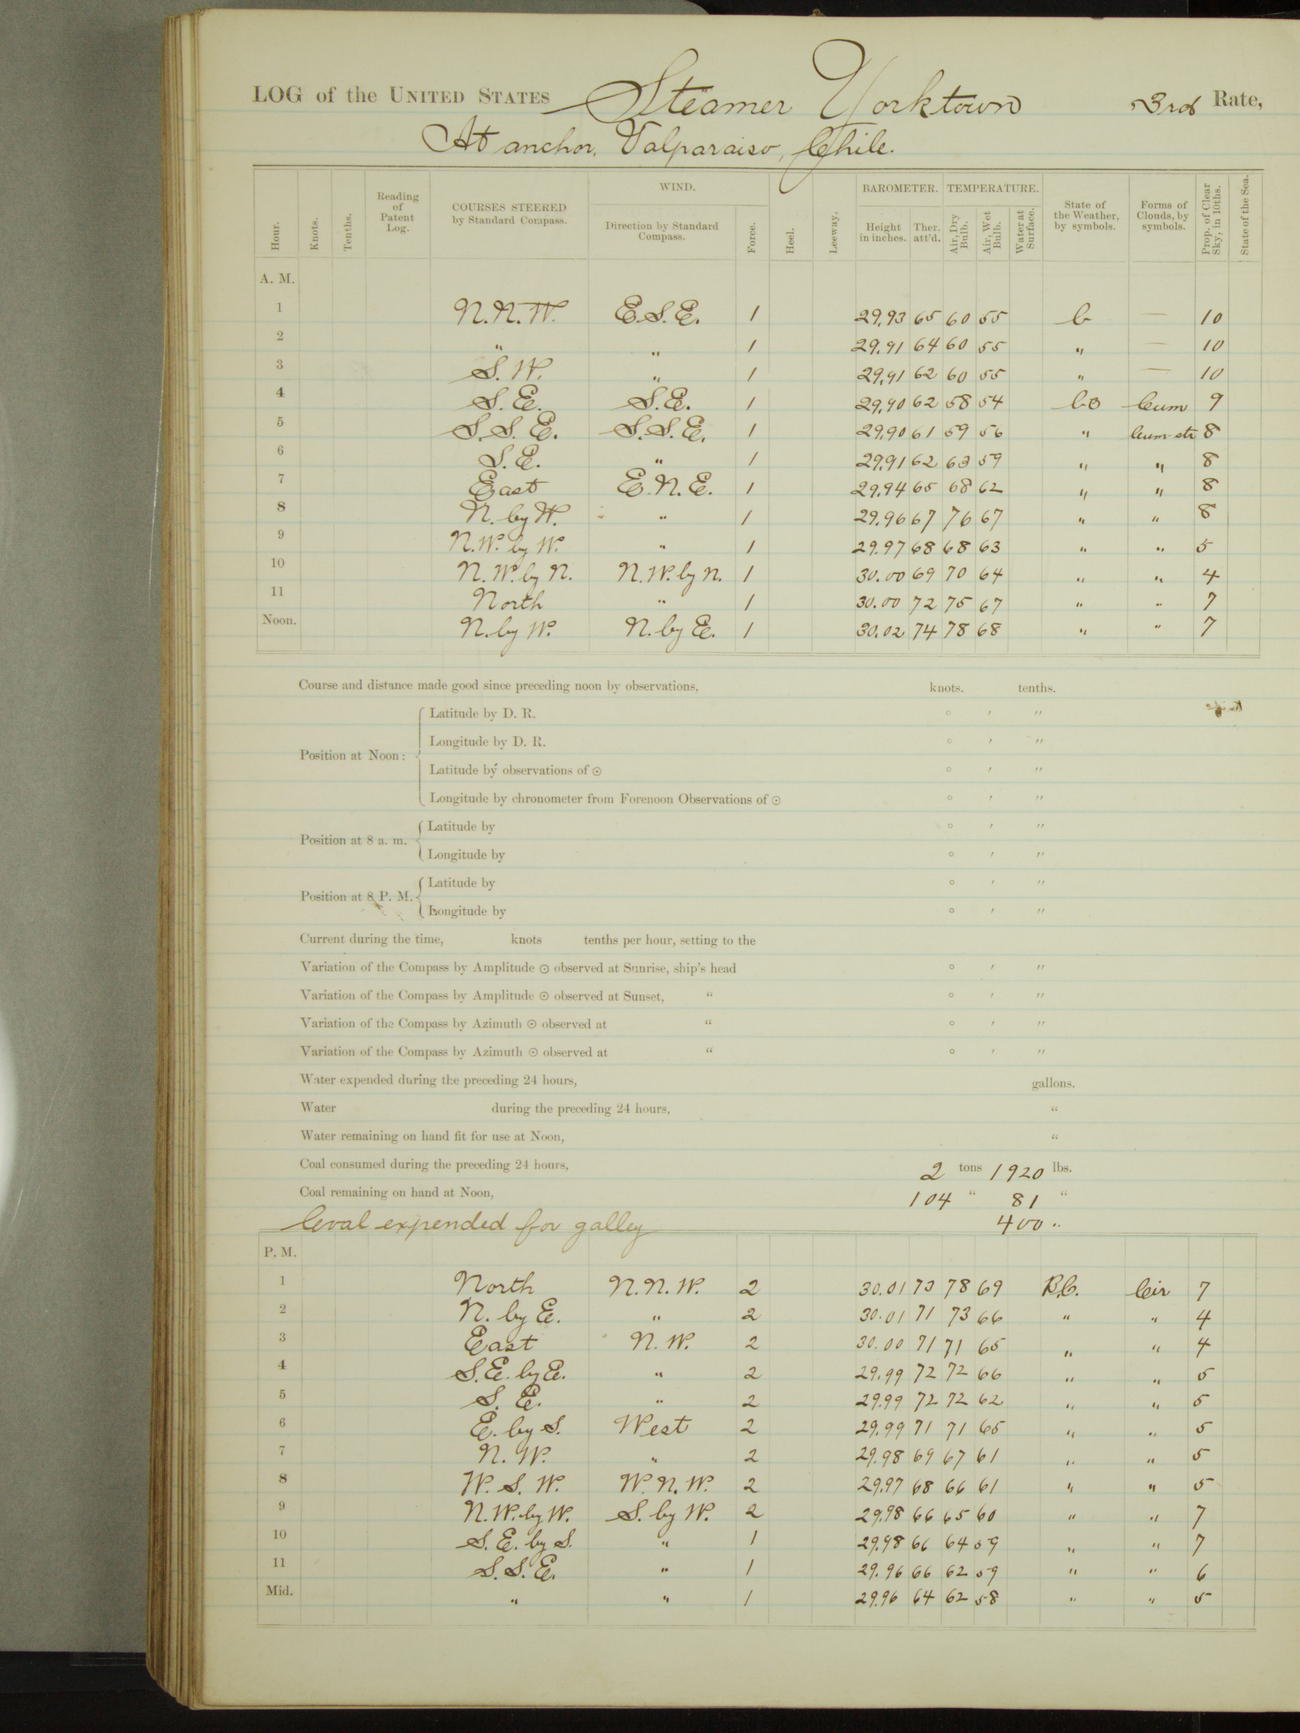 LOG of the UNITED STATES Steamer Yorktown 3rd Rate,
At anchor, Valparaiso, Chile.
Hour. Knots. Tenths. Reading of Patent Log. COURSES STEERED by Standard Compass. WIND. Direction by Standard Compass. Force. Heel. Leeway. BAROMETER. Height in inches. Ther. att'd. TEMPERATURE. Air, Dry Bulb. Air, Wet Bulb. Water at Surface. State of the Weather, by symbols. Forms of Clouds, by symbols. Prop. of Clear Sky, in 10ths. State of the Sea.
A. M.
1 N.N.W. E.S.E. 1 29.93 65 60 55 b — 10
2 " " 1 29.91 64 60 55 " — 10
3 S.W. " 1 29.91 62 60 55 " — 10
4 S.E. S.E. 1 29.90 62 58 54 bc Cum 9
5 S.S.E. S.S.E. 1 29.90 61 59 56 " Cum-str 8
6 S.E. " 1 29.91 62 63 59 " " 8
7 East E.N.E. 1 29.94 65 68 62 " " 8
8 N. by W. " 1 29.96 67 76 67 " " 8
9 N.W. by W. " 1 29.97 68 68 63 " " 5
10 N.W. by N. N.W. by N. 1 30.00 69 70 64 " " 4
11 North " 1 30.00 72 75 67 " " 7
Noon. N. by W. N. by E. 1 30.02 74 78 68 " " 7
Course and distance made good since preceding noon by observations, knots. tenths.
Position at Noon: Latitude by D. R. ° ′ ″
Longitude by D. R. ° ′ ″
Latitude by observations of ☉ ° ′ ″
Longitude by chronometer from Forenoon Observations of ☉ ° ′ ″
Position at 8 a. m. Latitude by ° ′ ″
Longitude by ° ′ ″
Position at 8 P. M. Latitude by ° ′ ″
Longitude by ° ′ ″
Current during the time, knots tenths per hour, setting to the
Variation of the Compass by Amplitude ☉ observed at Sunrise, ship's head ° ′ ″
Variation of the Compass by Amplitude ☉ observed at Sunset, " ° ′ ″
Variation of the Compass by Azimuth ☉ observed at " ° ′ ″
Variation of the Compass by Azimuth ☉ observed at " ° ′ ″
Water expended during the preceding 24 hours, gallons.
Water during the preceding 24 hours, "
Water remaining on hand fit for use at Noon, "
Coal consumed during the preceding 24 hours, 2 tons 1920 lbs.
Coal remaining on hand at Noon, 104 " 81 "
Coal expended for galley 400 "
P. M.
1 North N.N.W. 2 30.01 73 78 69 B.C. Cir 7
2 N. by E. " 2 30.01 71 73 66 " " 4
3 East N.W. 2 30.00 71 71 65 " " 4
4 S.E. by E. " 2 29.99 72 72 66 " " 5
5 S.E. " 2 29.99 72 72 62 " " 5
6 E. by S. West 2 29.99 71 71 65 " " 5
7 N.W. " 2 29.98 69 67 61 " " 5
8 W.S.W. W.N.W. 2 29.97 68 66 61 " " 5
9 N.W. by W. S. by W. 2 29.98 66 65 60 " " 7
10 S.E. by S. " 1 29.98 66 64 59 " " 7
11 S.S.E. " 1 29.96 66 62 59 " " 6
Mid. " " 1 29.96 64 62 58 " " 5